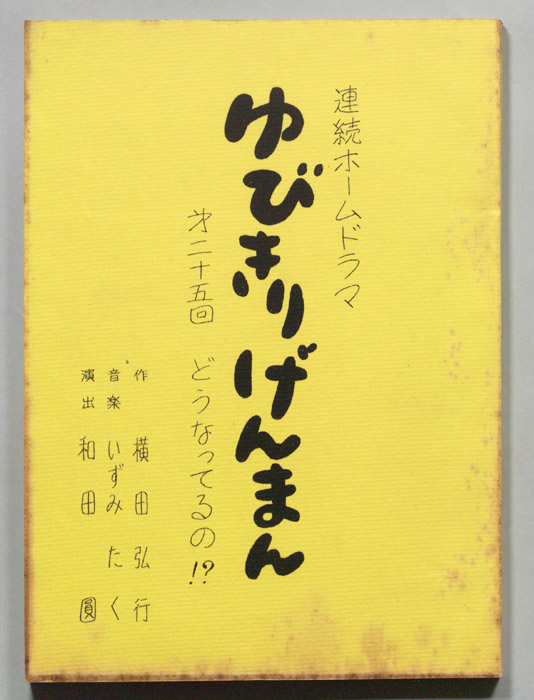 連続ホームドラマ
ゆびきりげんまん
㐧二十五回 どうなってるの!?
作 横田弘行
音楽 いずみたく
演出 和田圓